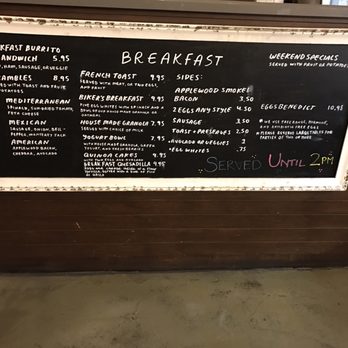 BREAKFAST
KFAST BURRITO
NDWICH 5.95
HAM, SAUSAGE, OR VEGGIE
AMBLES 8.95
ED WITH TOAST AND FRUIT
MEDITERRANEAN
SPINACH, SUN-DRIED TOMATO,
FETA CHEESE
MEXICAN
AMERICAN
APPLEWOOD BACON,
CHEDDAR, AVOCADO
FRENCH TOAST 9.95
SERVED WITH MEAT, OR TWO EGGS,
AND FRUIT
BIKER'S BREAKFAST 9.95
HOUSE MADE GRANOLA 7.95
SERVED WITH CHOICE OF MILK
YOGURT BOWL 7.95
QUINOA CAKES 9.95
BREAKFAST QUESADILLA 9.95
SIDES:
APPLEWOOD SMOKED
BACON 3.50
2 EGGS ANY STYLE 4.50
SAUSAGE 3.50
TOAST + PRESERVES 2.50
AVOCADO OR VEGGIES 2
EGG WHITES .75
WEEKEND SPECIALS
SERVED WITH FRUIT OR POTATOES
EGGS BENEDICT 10.95
* WE USE FREE RANGE, HORMONE,
AND ANTIBIOTIC FREE EGGS
SERVED UNTIL 2PM